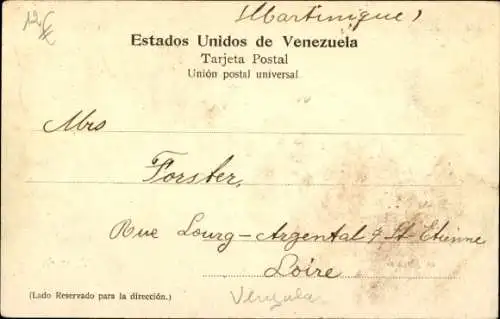 Martinique)
Estados Unidos de Venezuela
Tarjeta Postal
Unión postal universal
Mrs
Forster,
Rue Lourg-Argental 9 St Etienne
Loire
(Lado Reservado para la dirección.)